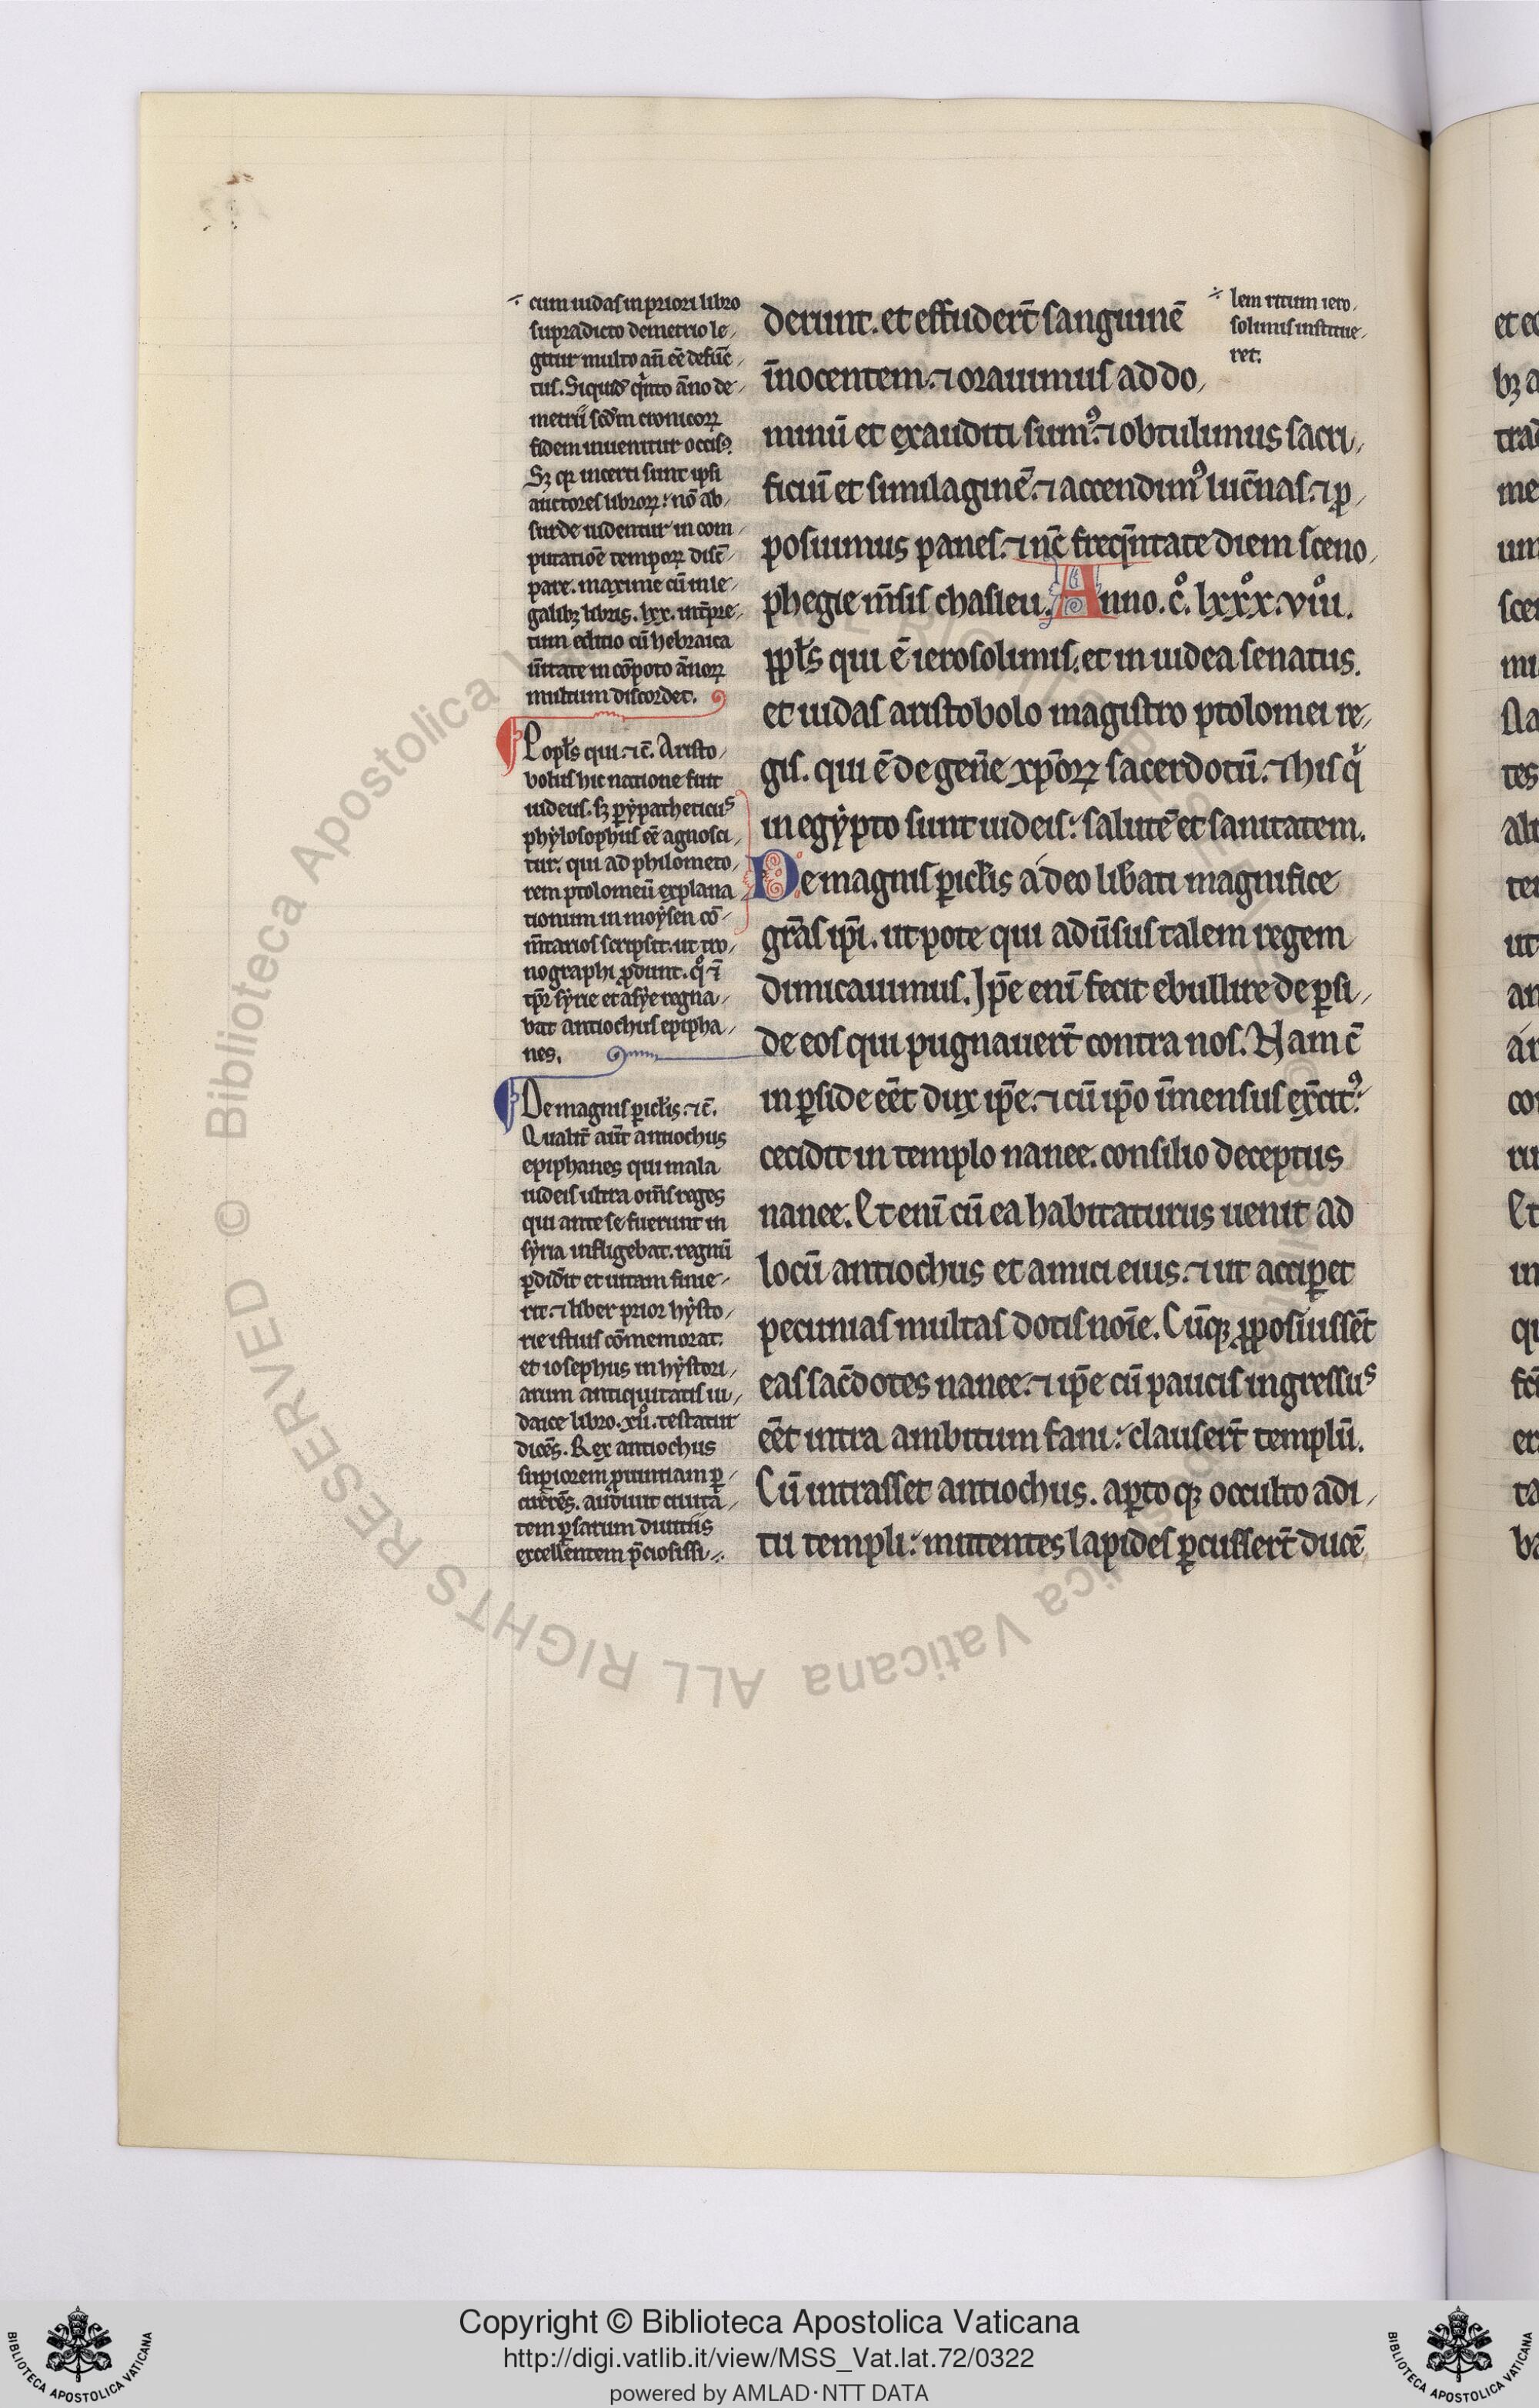 ÷ cum iudas in priori libro
supradicto demetrio le-
gitur multo an̄ eē defūc-
tus. Siquid̄ qͥnto āno de-
metrii scd̄m cronicoꝝ
fidem inuenitur occisꝰ.
Sꝫ qꝛ incerti sunt ipsi
auctores libroꝝ: nō ab-
surde uidentur in com-
putatiōe tempoꝝ disc̄-
pare. maxime cū in le-
galibꝫ libris. lxx. int̄pre-
tum editio cū hebraica
ūitate in cōpoto ānoꝝ
multum discordet.
Popl̄s qui. ⁊c̄. Aristo-
bolus hic natione fuit
iudeus. sꝫ ꝑypatheticus
phylosophus eē agnosci-
tur. qui ad philometo-
rem ptolomeū explana
tionum in moysen cō-
m̄tarios scripsit. ut cro-
nographi ꝓdunt. qͦ ⁊ī
tp̄r syrie et asye regna-
bat antiochus epipha-
nes.
De magnis ꝑicl̄is. ⁊c̄.
Qualit̄ aūt antiochus
epiphanes qui mala
iudeis ultra om̄s reges
qui ante se fuerunt in
syria infligebat. regnū
ꝑdidit et uitam finie-
rit. ⁊ liber prior hysto-
rie istius cōmemorat.
et iosephus in hystori-
arum antiquitatis iu-
daice libro. xiiͦ. testatur
dicēs. Rex antiochus
suꝑiorem ꝓuintiam ꝑ-
currēs. audiuit ciuita-
tem ꝑsarum diuitiis
excellentem p̄ciosissi÷
derunt. et effudert̄ sanguinē
īnocentem. ⁊ orauimus ad do-
minū et exauditi sumꝰ. ⁊ obtulimus sacri-
ficiū et similaginē. ⁊ accendimꝰ luc̄nas. ⁊ ꝓ-
posuimus panes. ⁊ nc̄ freqn̄tate diem sceno-
phegie m̄sis chasleu. Anno. cͦ. lxxxͦ. viiiͦ.
ppl̄s qui ē ierosolimis. et in iudea senatus.
et iudas aristobolo magistro ptolomei re-
gis. qui ē de gen̄e xp̄oꝝ sacerdotū. ⁊ his qͥ
in egypto sunt iudeis: salutē et sanitatem.
De magnis ꝑicl̄is a deo lib̄ati magnifice
grās ip̄i. utpote qui adūsus talem regem
dimicauimus. Ip̄e enī fecit ebullire de ꝑsi-
de eos qui pugnauert̄ contra nos. Nam c̄
in ꝑside eēt dux ip̄e. ⁊ cū ip̄o īmensus ex̄citꝰ:
cecidit in templo nanee. consilio deceptus
nanee. Et enī cū ea habitaturus uenit ad
locū antiochus et amici eius. ⁊ ut acciꝑet
pecunias multas dotis noīe. Cūqꝫ ꝓposuissēt
eas sac̄dotes nanee. ⁊ ip̄e cū paucis ingressus
eēt intra ambitum fani: clausert̄ templū.
Cū intrasset antiochus. aꝑtoqꝫ occulto adi-
tu templi: mittentes lapides ꝑcussert̄ ducē
÷ lem ritum iero-
solimis institue-
ret.
Copyright © Biblioteca Apostolica Vaticana
http://digi.vatlib.it/view/MSS_Vat.lat.72/0322
powered by AMLAD·NTT DATA
BIBLIOTECA APOSTOLICA VATICANA
BIBLIOTECA APOSTOLICA VATICANA